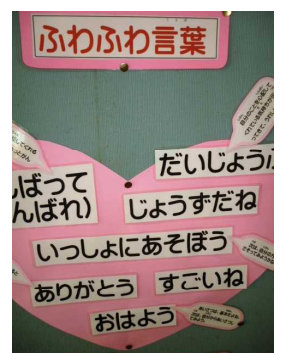 ふわふわ言葉
だいじょうぶ
ばって
んばれ)
じょうずだね
いっしょにあそぼう
ありがとう
すごいね
おはよう